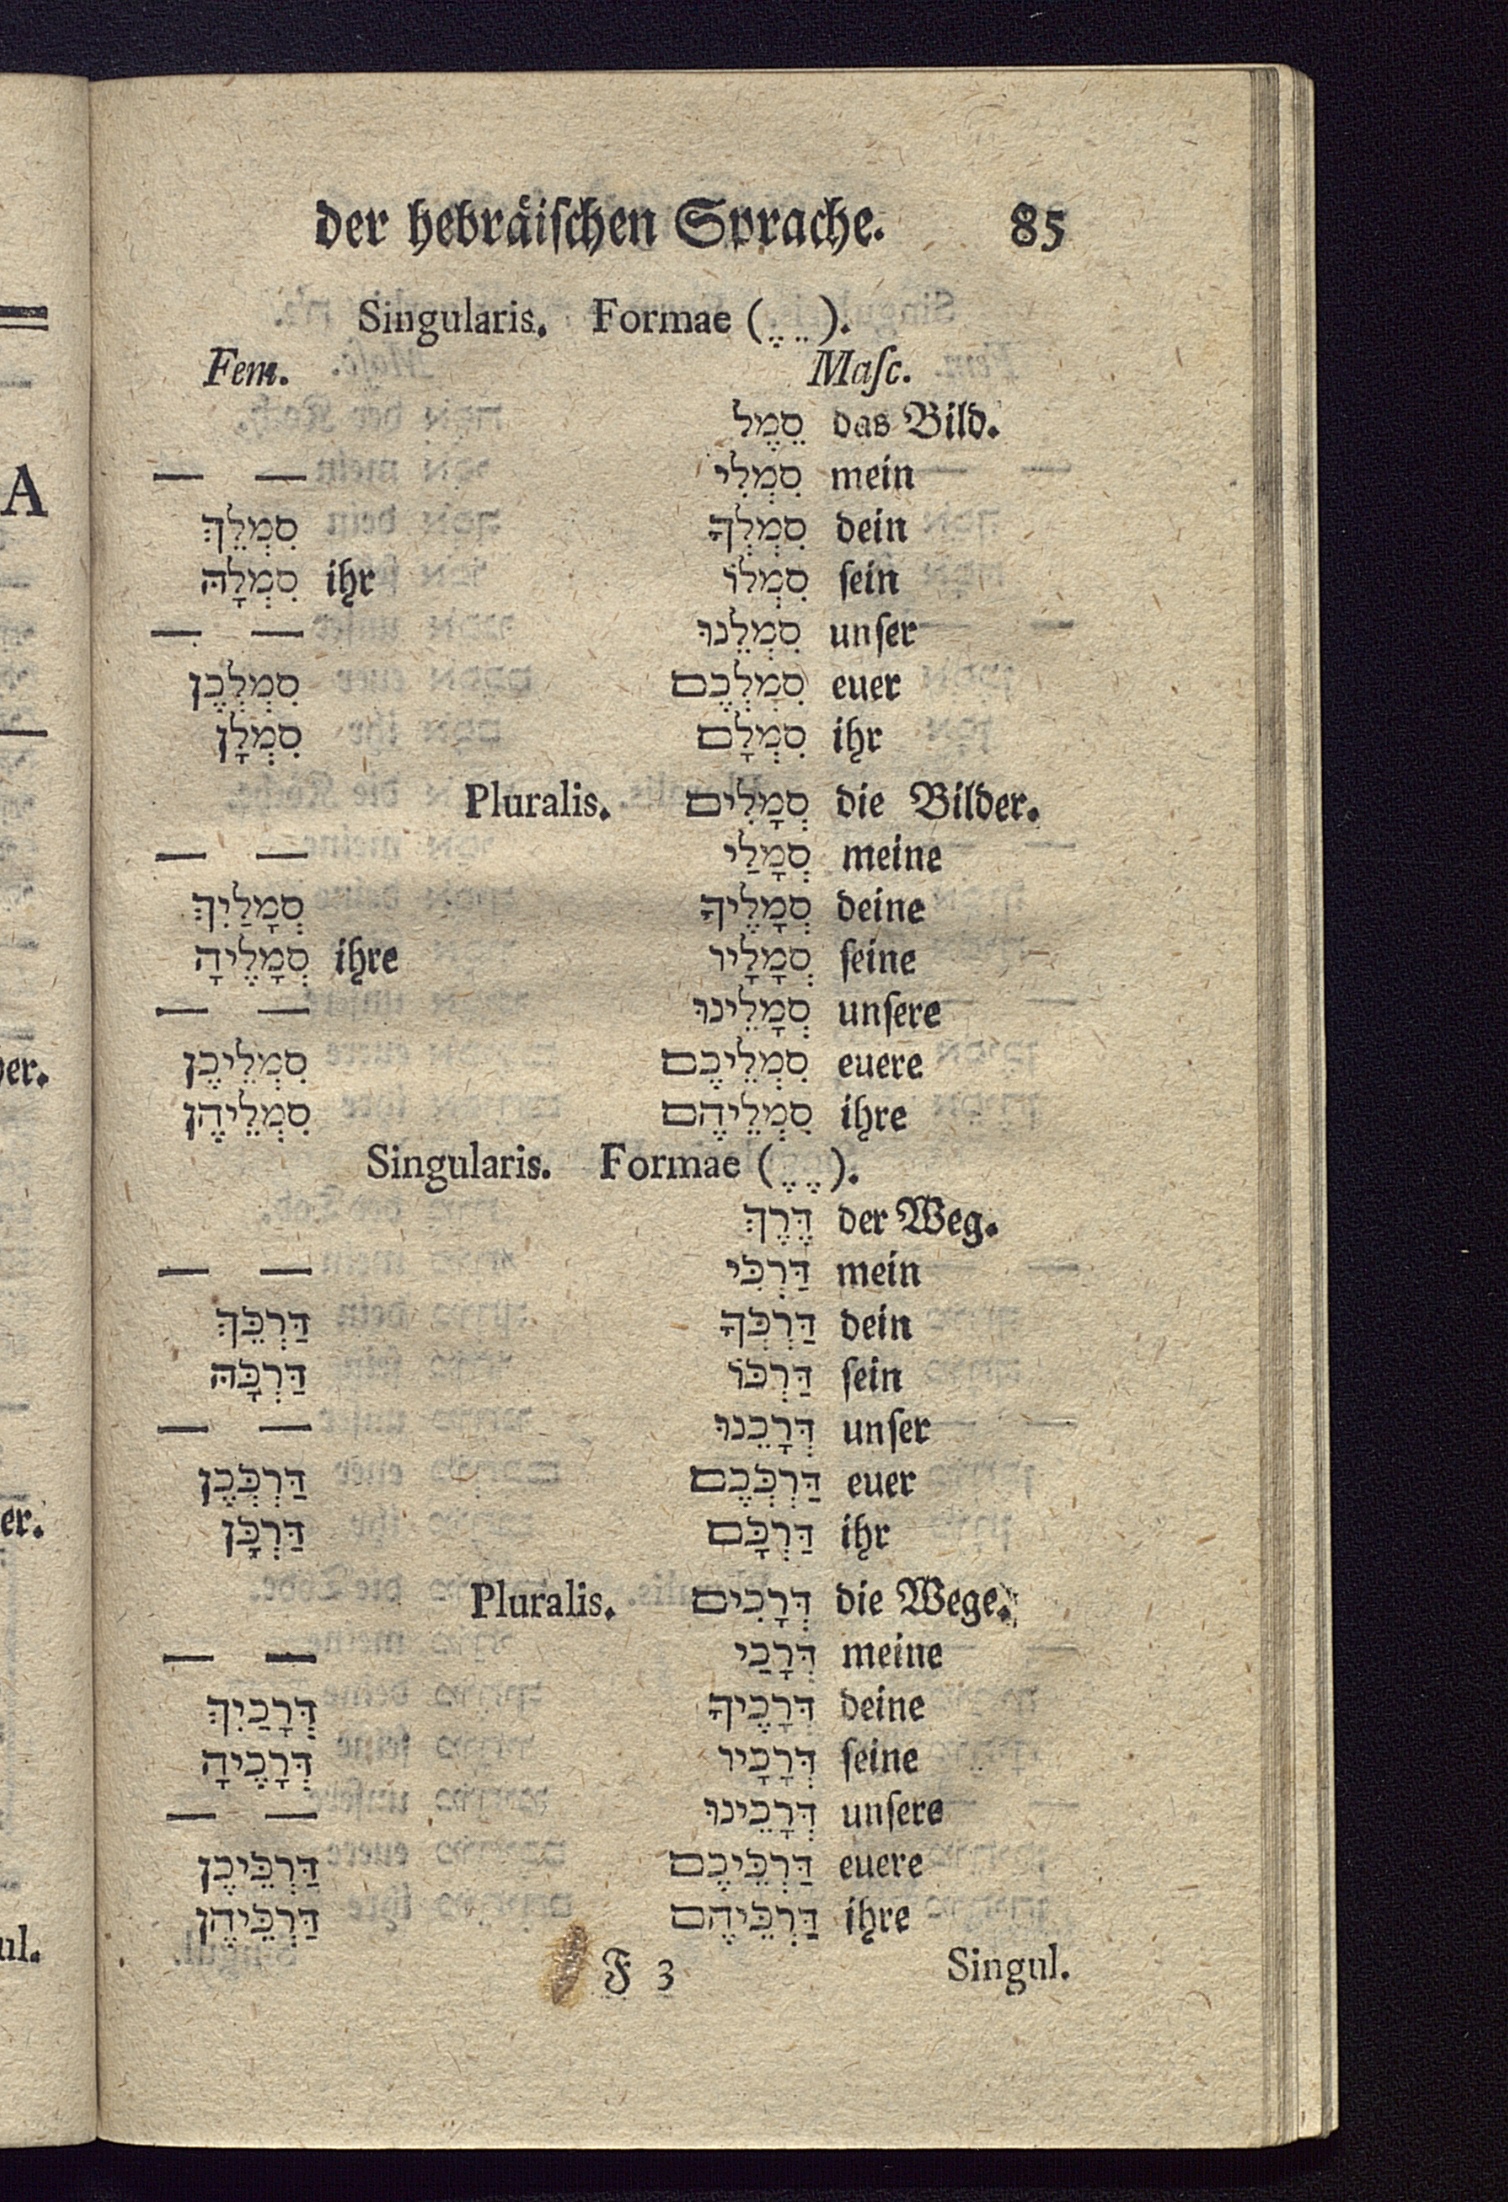 der hebräischen Sprache. 85
Singularis. Formae ( ֶ ֵ ).
Fem. Masc.
סֵמֶל das Bild.
— — סִמְלִי mein
סִמְלֵךְ סִמְלְךָ dein
סִמְלָהּ ihr סִמְלוֹ sein
— — סִמְלֵנוּ unser
סִמְלְכֶן סִמְלְכֶם euer
סִמְלָן סִמְלָם ihr
Pluralis. סְמָלִים die Bilder.
— — סְמָלַי meine
סְמָלַיִךְ סְמָלֶיךָ deine
סְמָלֶיהָ ihre סְמָלָיו seine
— — סְמָלֵינוּ unsere
סִמְלֵיכֶן סִמְלֵיכֶם euere
סִמְלֵיהֶן סִמְלֵיהֶם ihre
Singularis. Formae ( ֶ ֶ ).
דֶּרֶךְ der Weg.
— — דַּרְכִּי mein
דַּרְכֵּךְ דַּרְכְּךָ dein
דַּרְכָּהּ דַּרְכּוֹ sein
— — דְּרָכֵנוּ unser
דַּרְכְּכֶן דַּרְכְּכֶם euer
דַּרְכָּן דַּרְכָּם ihr
Pluralis. דְּרָכִים die Wege.
— — דְּרָכַי meine
דְּרָכַיִךְ דְּרָכֶיךָ deine
דְּרָכֶיהָ דְּרָכָיו seine
— — דְּרָכֵינוּ unsere
דַּרְכֵּיכֶן דַּרְכֵּיכֶם euere
דַּרְכֵּיהֶן דַּרְכֵּיהֶם ihre
F 3 Singul.
A
er.
er.
ul.